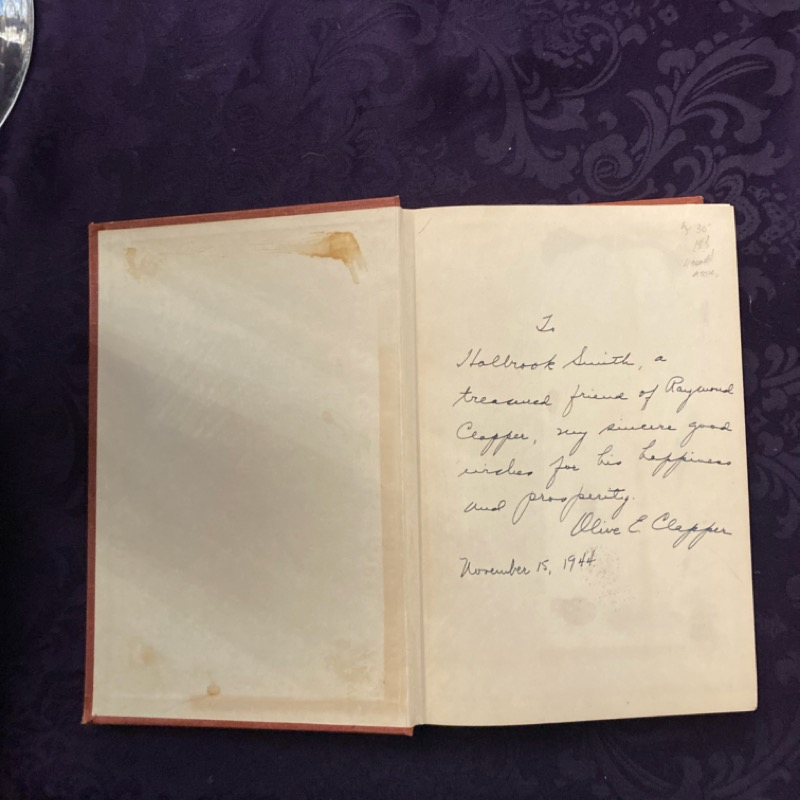 To
Holbrook Smith, a
treasured friend of Raymond
Clapper, my sincere good
wishes for his happiness
and prosperity.
Olive E. Clapper
November 15, 1944